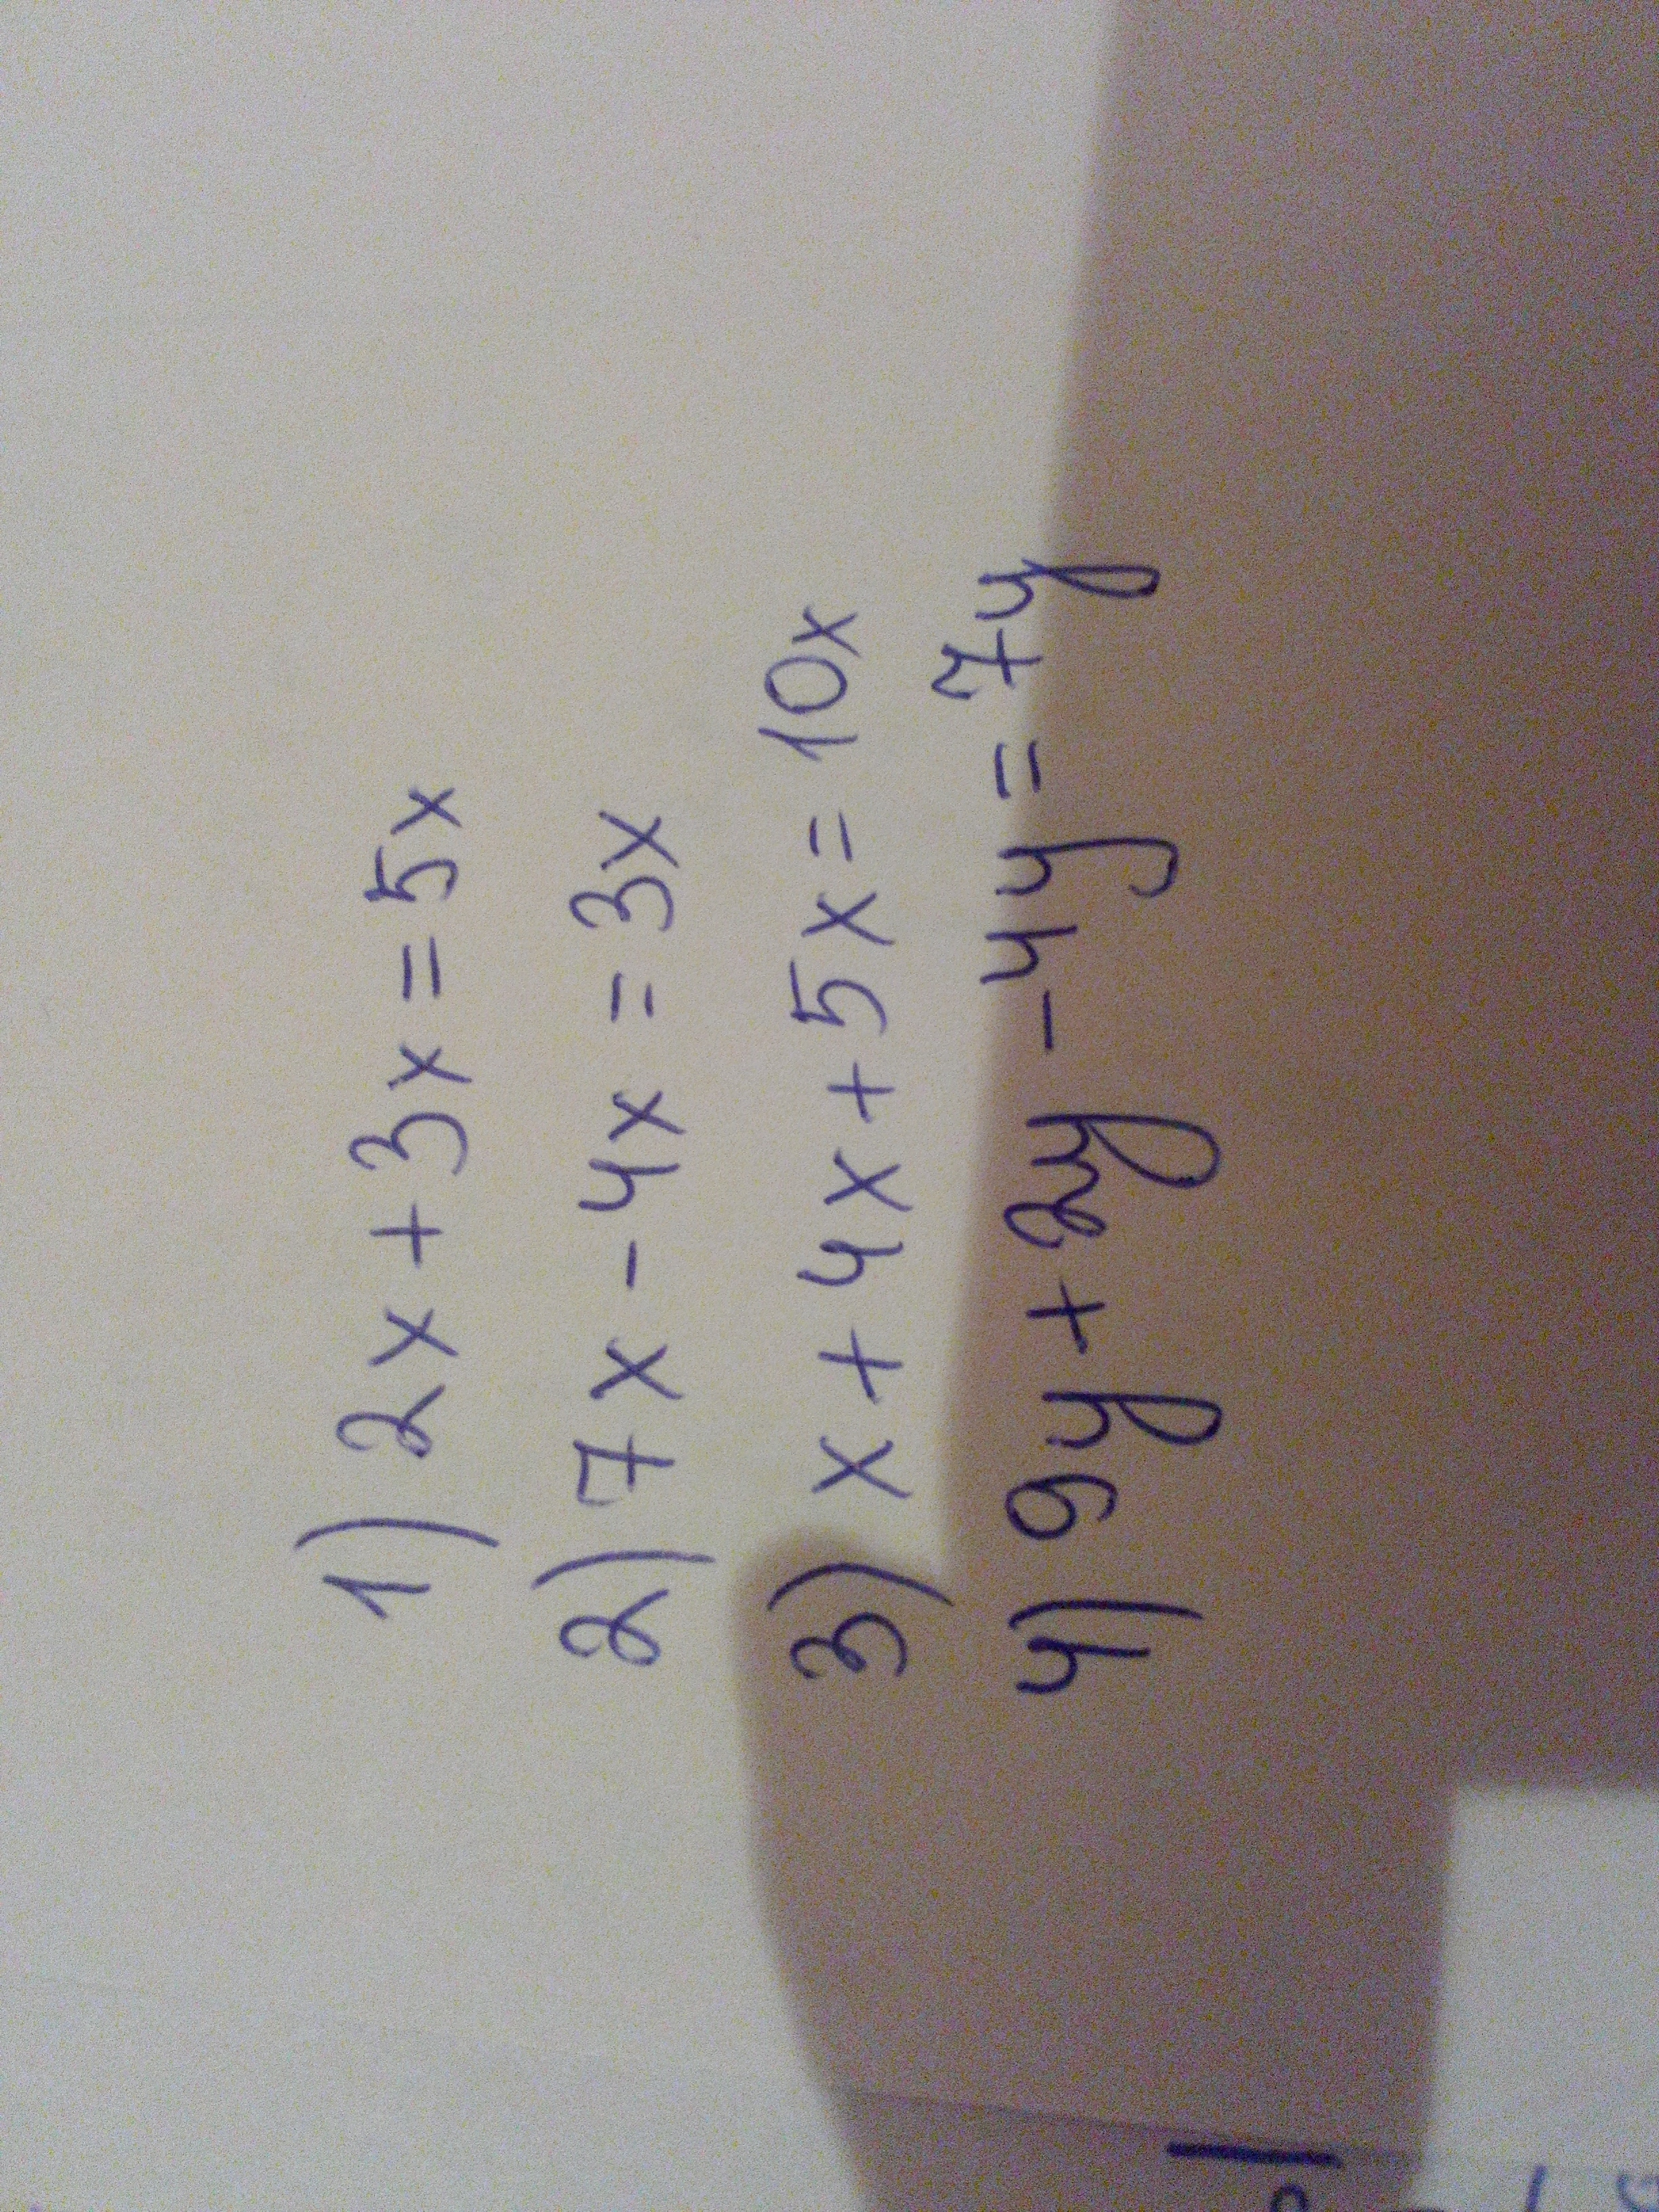 1) 2x + 3x = 5x
2) 7x - 4x = 3x
3) x + 4x + 5x = 10x
4) 9y + 2y - 4y = 7y